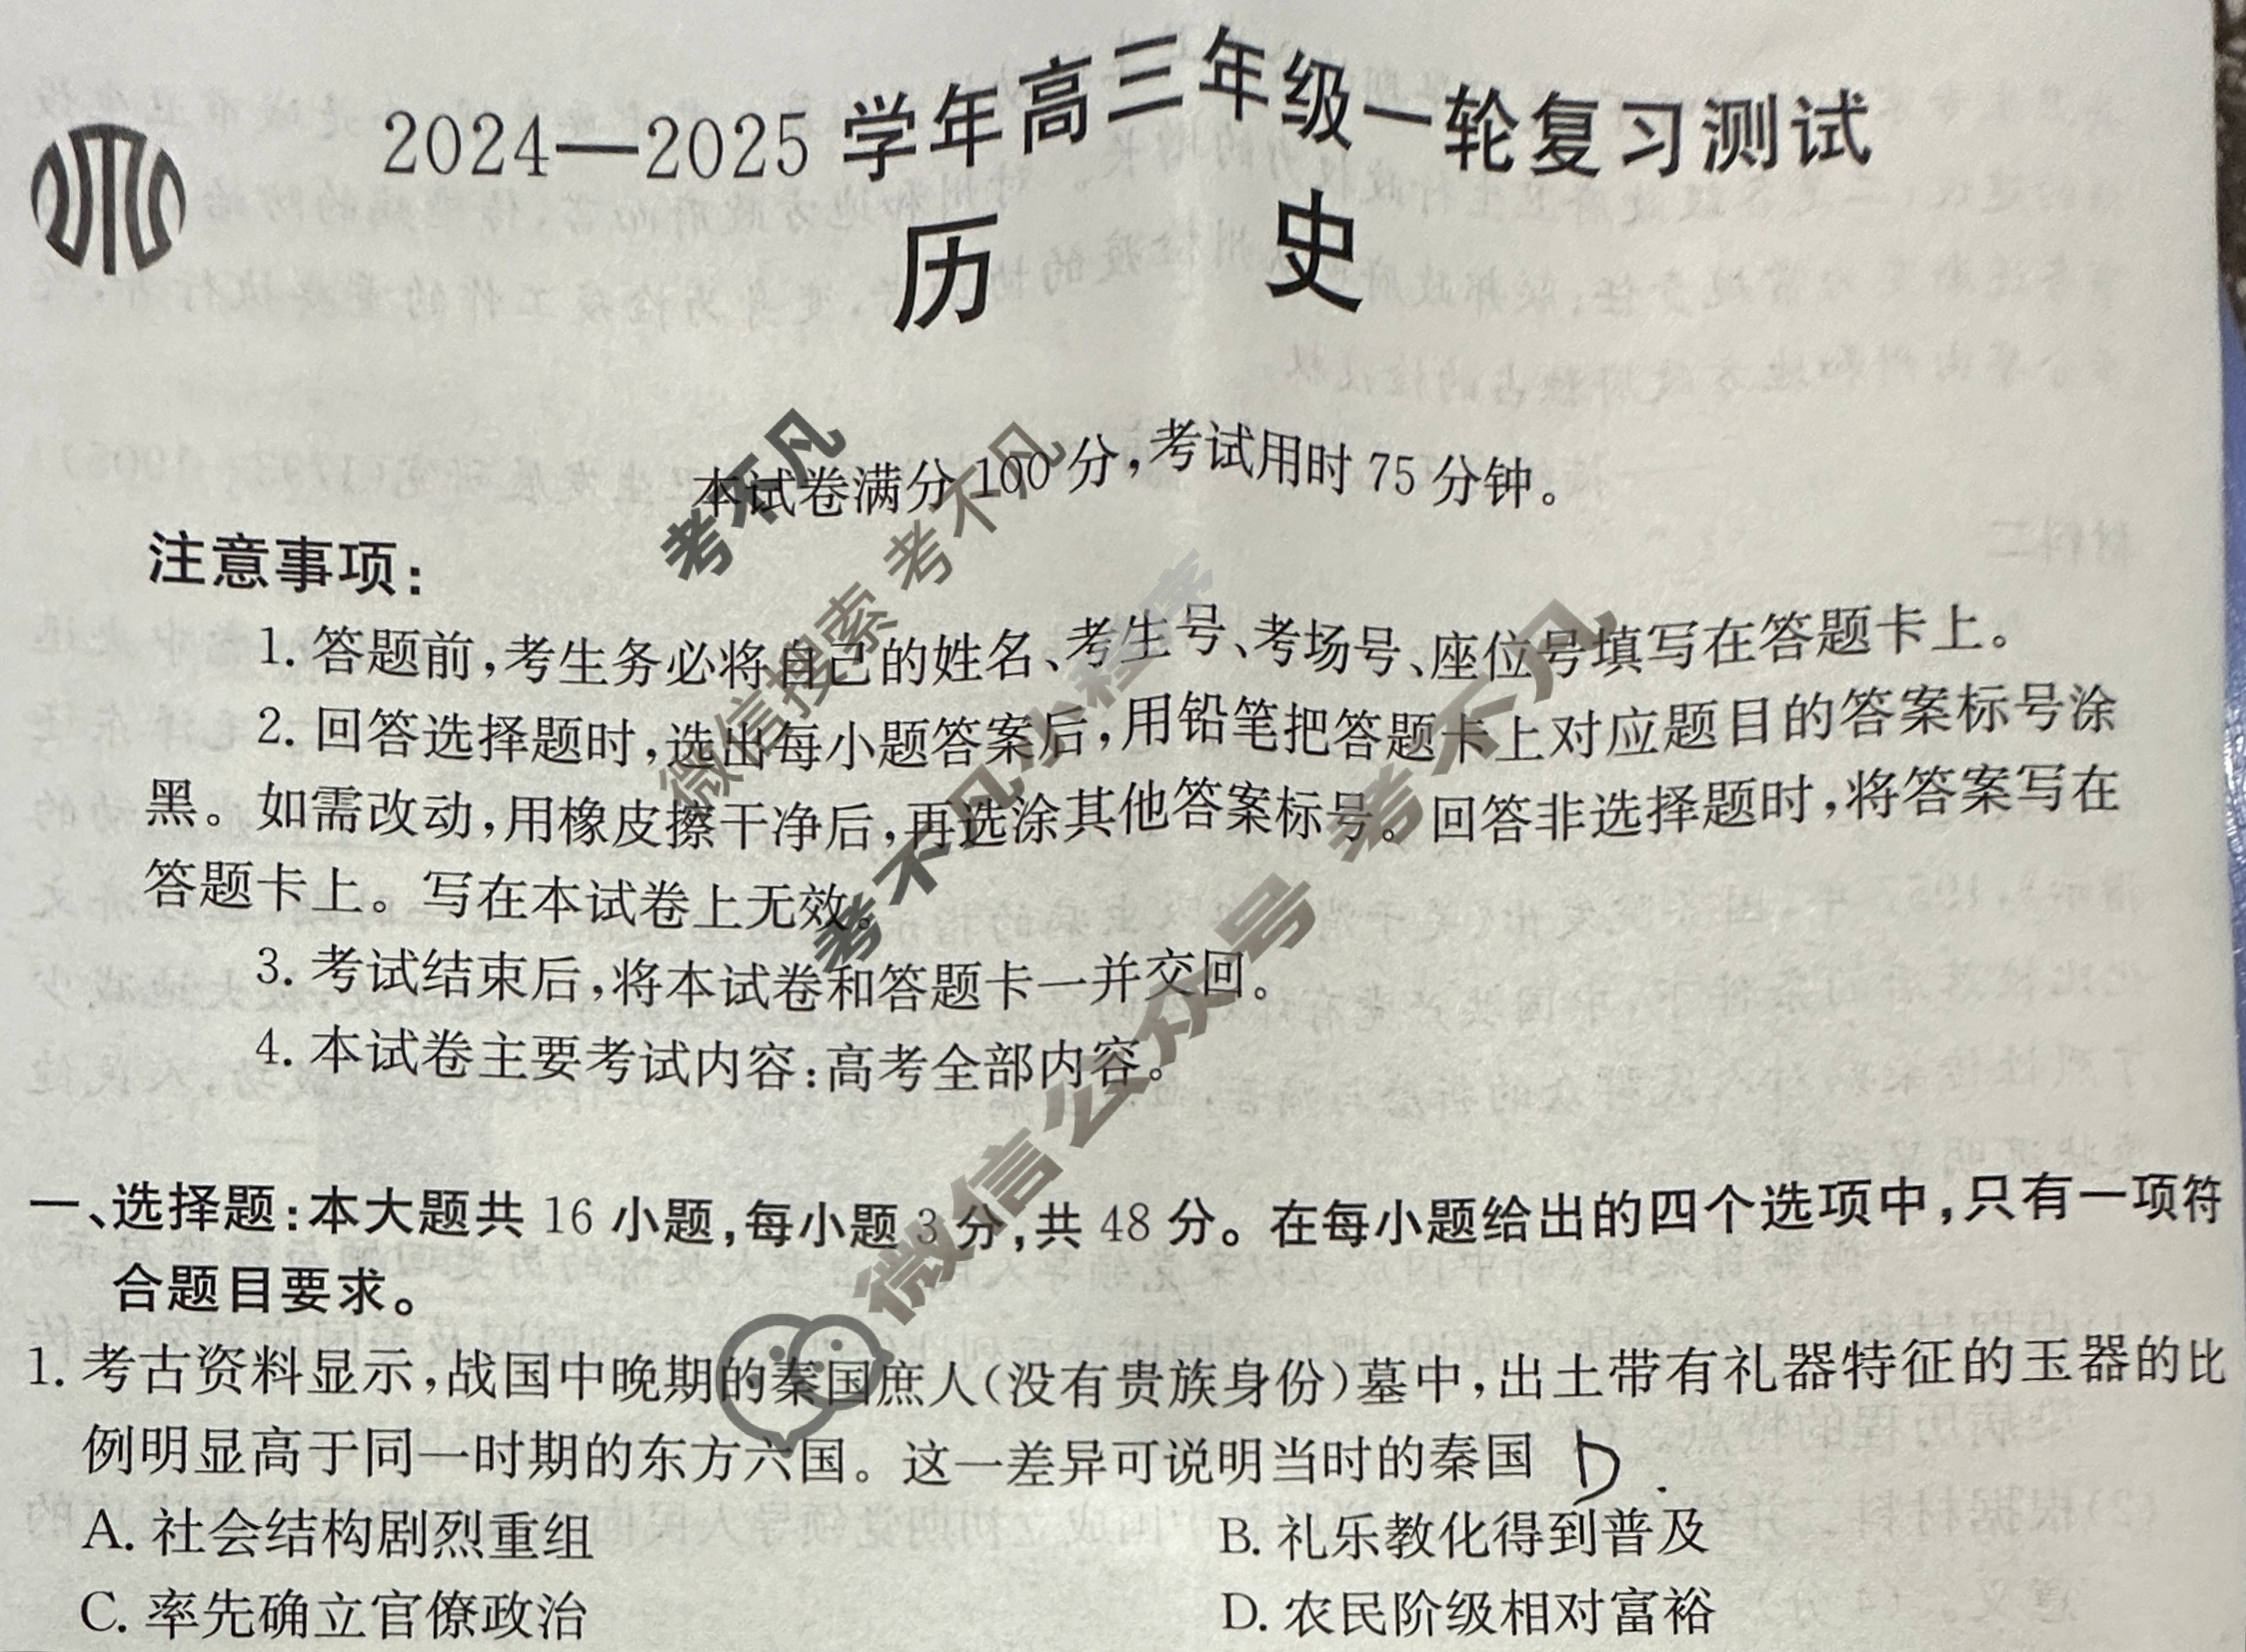 2024—2025学年高三年级一轮复习测试
历 史
本试卷满分100分,考试用时75分钟。
注意事项:
1. 答题前,考生务必将自己的姓名、考生号、考场号、座位号填写在答题卡上。
2. 回答选择题时,选出每小题答案后,用铅笔把答题卡上对应题目的答案标号涂
黑。如需改动,用橡皮擦干净后,再选涂其他答案标号。回答非选择题时,将答案写在
答题卡上。写在本试卷上无效。
3. 考试结束后,将本试卷和答题卡一并交回。
4. 本试卷主要考试内容:高考全部内容。
一、选择题:本大题共16小题,每小题3分,共48分。在每小题给出的四个选项中,只有一项符
合题目要求。
1. 考古资料显示,战国中晚期的秦国庶人(没有贵族身份)墓中,出土带有礼器特征的玉器的比
例明显高于同一时期的东方六国。这一差异可说明当时的秦国 D.
A. 社会结构剧烈重组
B. 礼乐教化得到普及
C. 率先确立官僚政治
D. 农民阶级相对富裕
考不凡
微信搜索 考不凡
考不凡小程序
微信公众号 考不凡